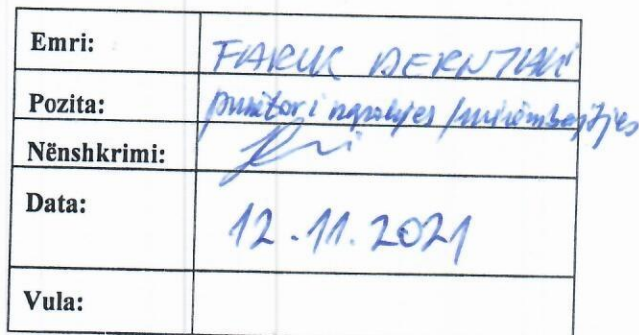 Emri: FARUK
Pozita: punëtor i ngrohjes / mirëmbajtjes
Nënshkrimi:
Data: 12.11.2021
Vula: